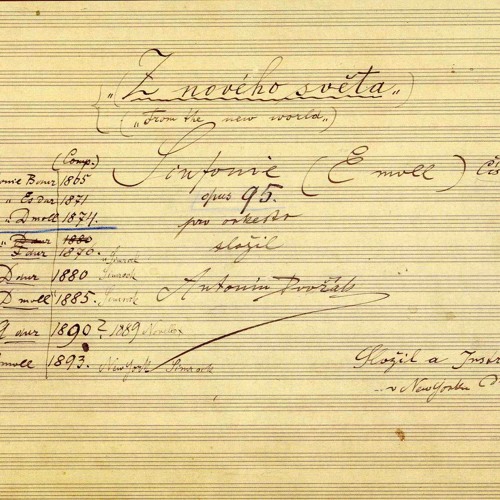 „Z nového světa„
(„From the new world„)
Sinfonie (E moll)
opus 95.
pro orkestr
složil
Antonín Dvořák
(Comp.)
B dur 1865
„ Es dur 1871
„ D moll 1874.
„ D dur 1880
F dur 1870. Simrock
D dur 1880 Simrock
D moll 1885. Simrock
G dur 1890? 1889 Novello
moll 1893. New York Simrock
Složil a Instr
v New Yorku